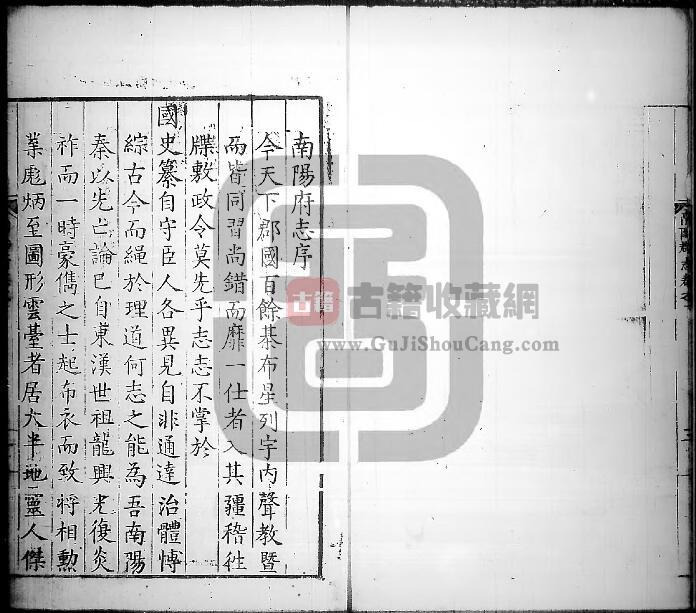 南陽府志序
今天下郡國百餘棊布星列宇內聲教暨
而皆同習尚錯而靡一仕者入其疆稽徃
牒敷政令莫先乎志志不掌於
國史纂自守臣人各異見自非通達治體愽
綜古今而繩於理道何志之能為吾南陽
秦以先亡論已自東漢世祖龍興光復炎
祚而一時豪儁之士起布衣而致將相勲
業彪炳至圖形雲臺者居大半地靈人傑
古籍
古籍收藏網
www.GuJiShouCang.com